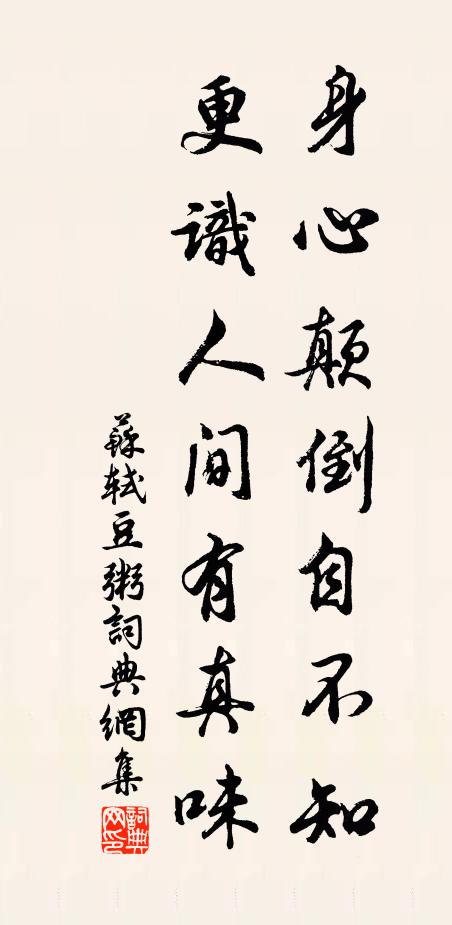 身心顛倒自不知
更識人間有真味
蘇軾豆粥詞典網集
詞典網印